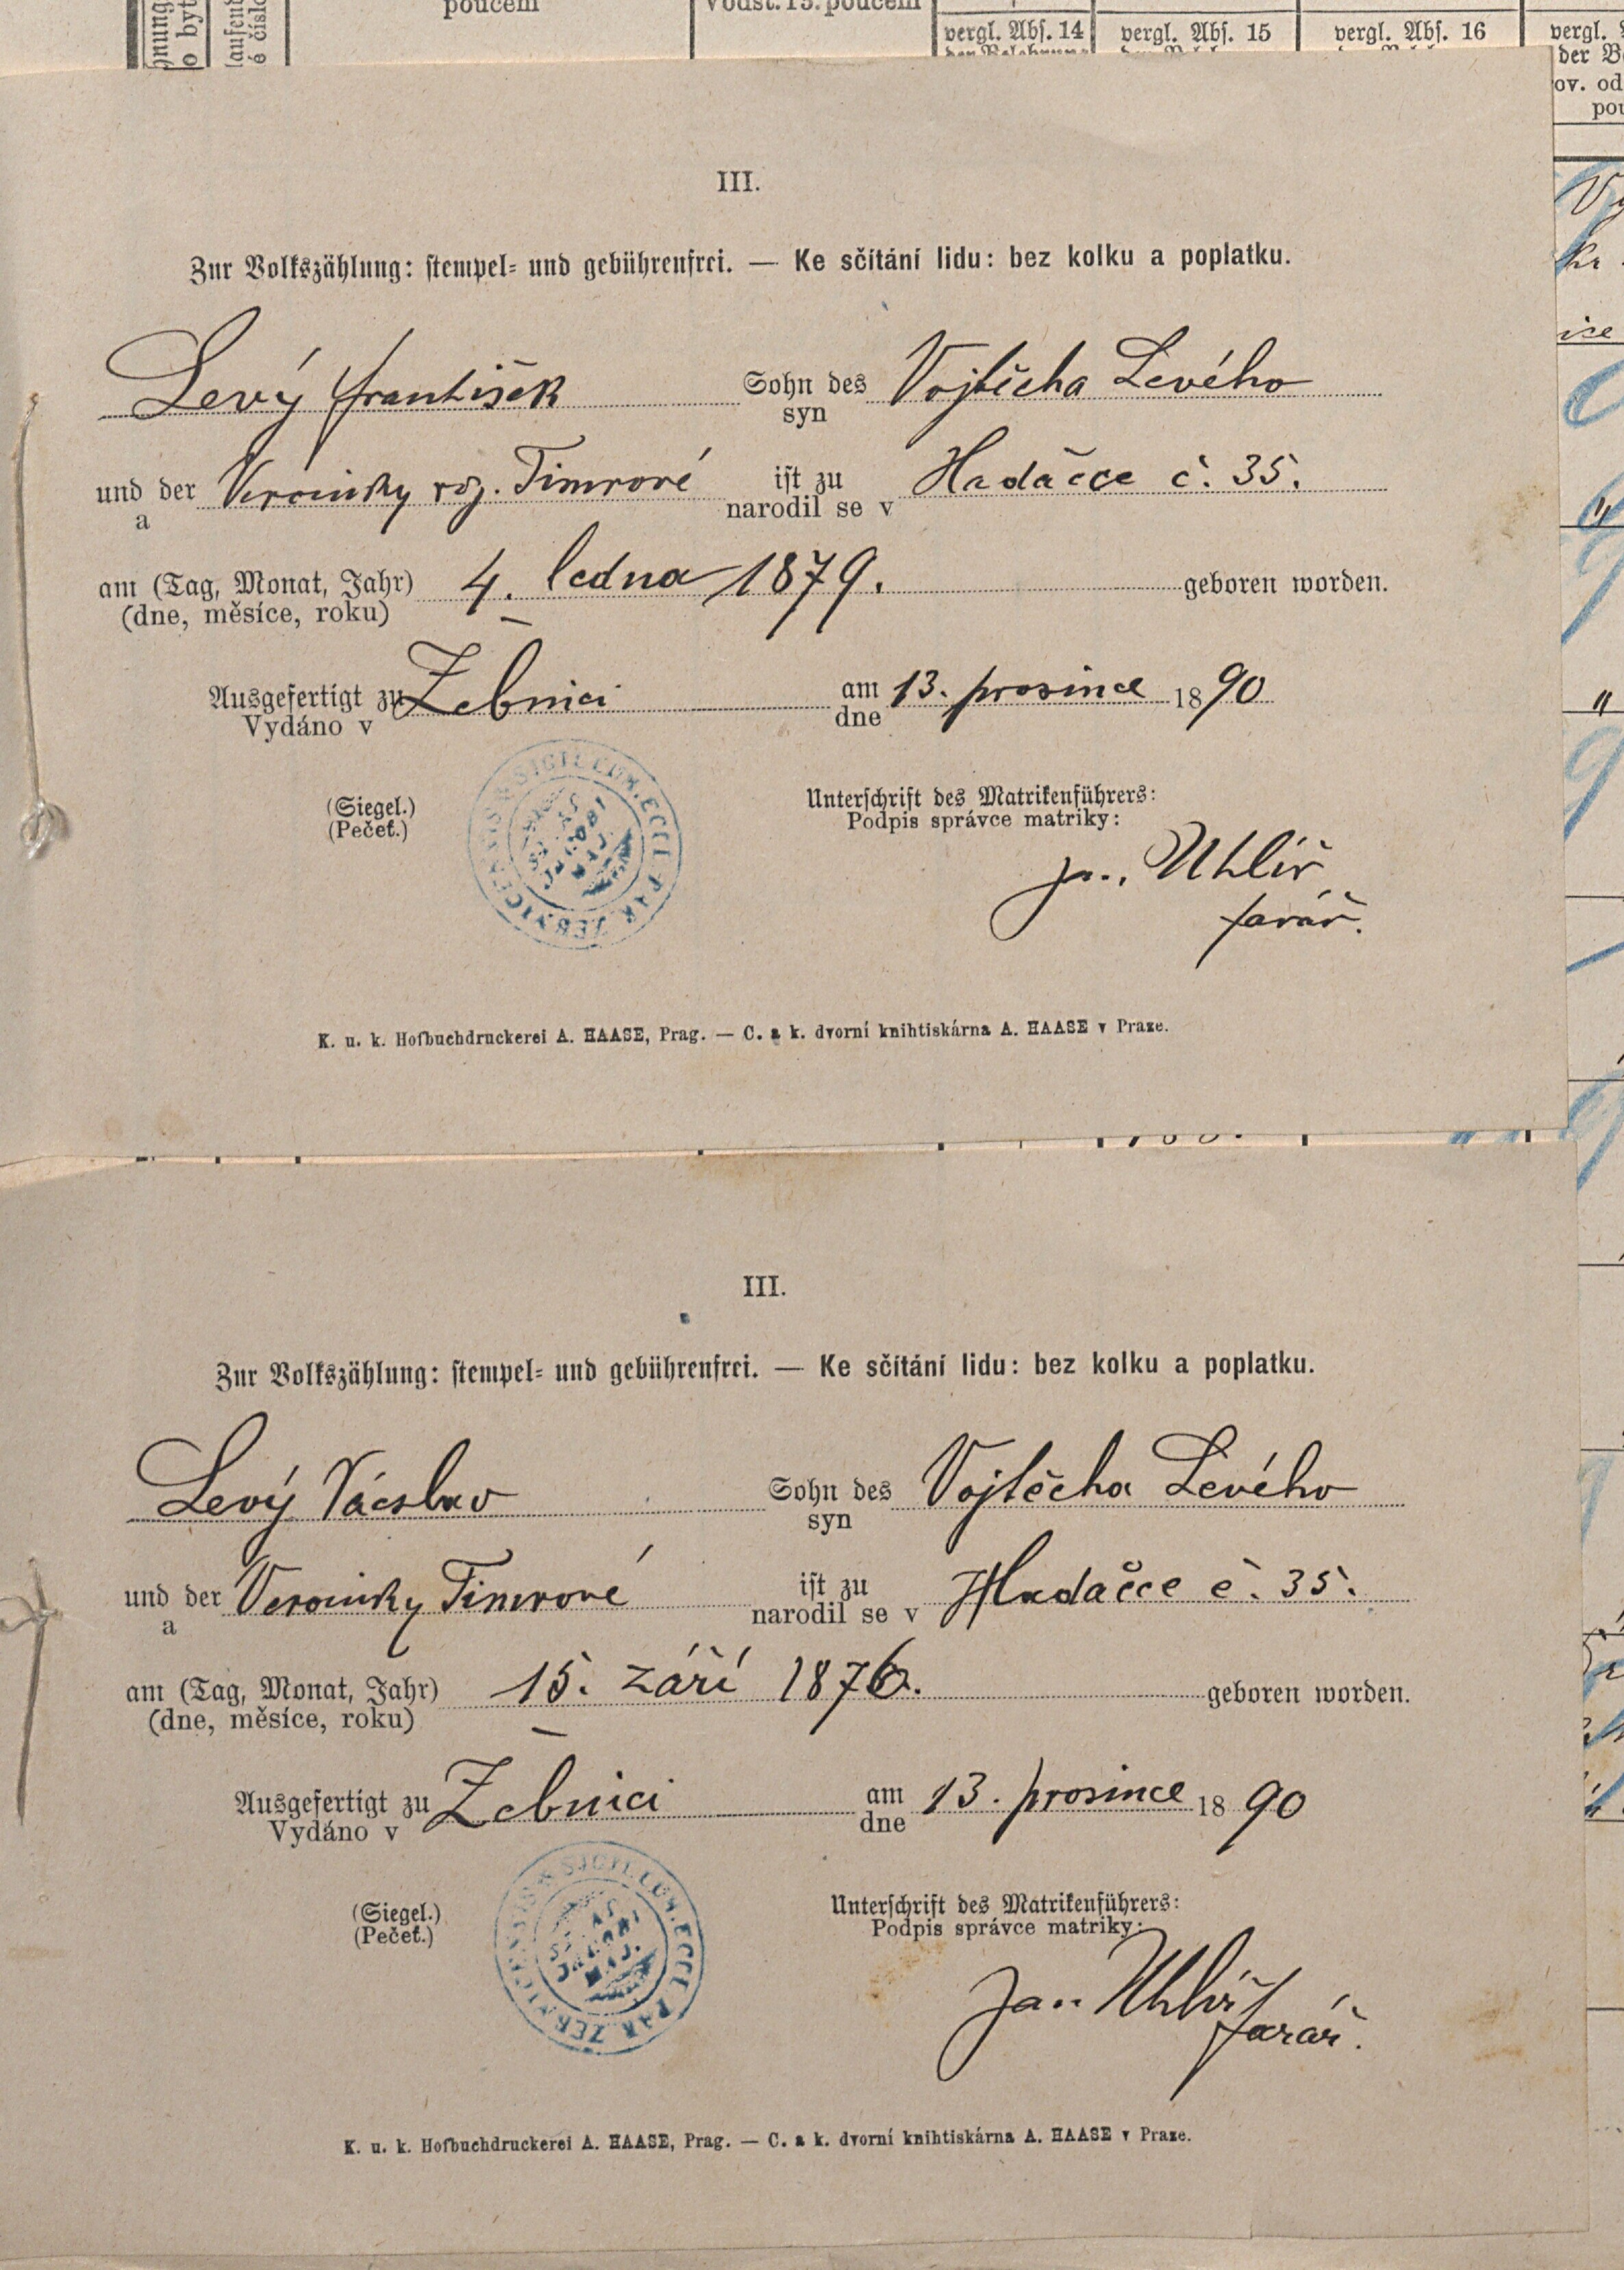 poučení
vergl. Abs. 14
vergl. Abs. 15
vergl. Abs. 16
vergl.
III.
Zur Volkszählung: stempel- und gebührenfrei. — Ke sčítání lidu: bez kolku a poplatku.
Levý František Sohn des Vojtěcha Levého
syn
und der Veroniky roz. Timrové ist zu Hadačce č. 35.
a narodil se v
am (Tag, Monat, Jahr) 4. ledna 1879. geboren worden.
(dne, měsíce, roku)
Ausgefertigt zu Žebnici am 13. prosince 1890
Vydáno v dne
(Siegel.) Unterschrift des Matrikenführers:
(Pečeť.) Podpis správce matriky:
SIGILLUM. ECCL. PAR. ŽEBNICENSIS
JACOBI
MAJ.
Uhlíř
farář.
K. u. k. Hofbuchdruckerei A. HAASE, Prag. — C. a k. dvorní knihtiskárna A. HAASE v Praze.
III.
Zur Volkszählung: stempel- und gebührenfrei. — Ke sčítání lidu: bez kolku a poplatku.
Levý Václav Sohn des Vojtěcha Levého
syn
und der Veroniky Timrové ist zu Hadačce č. 35.
a narodil se v
am (Tag, Monat, Jahr) 15. září 1876. geboren worden.
(dne, měsíce, roku)
Ausgefertigt zu Žebnici am 13. prosince 1890
Vydáno v dne
(Siegel.) Unterschrift des Matrikenführers:
(Pečeť.) Podpis správce matriky:
SIGILLUM. ECCL. PAR. ŽEBNICENSIS
JACOBI
MAJ.
Jan Uhlíř
farář.
K. u. k. Hofbuchdruckerei A. HAASE, Prag. — C. a k. dvorní knihtiskárna A. HAASE v Praze.